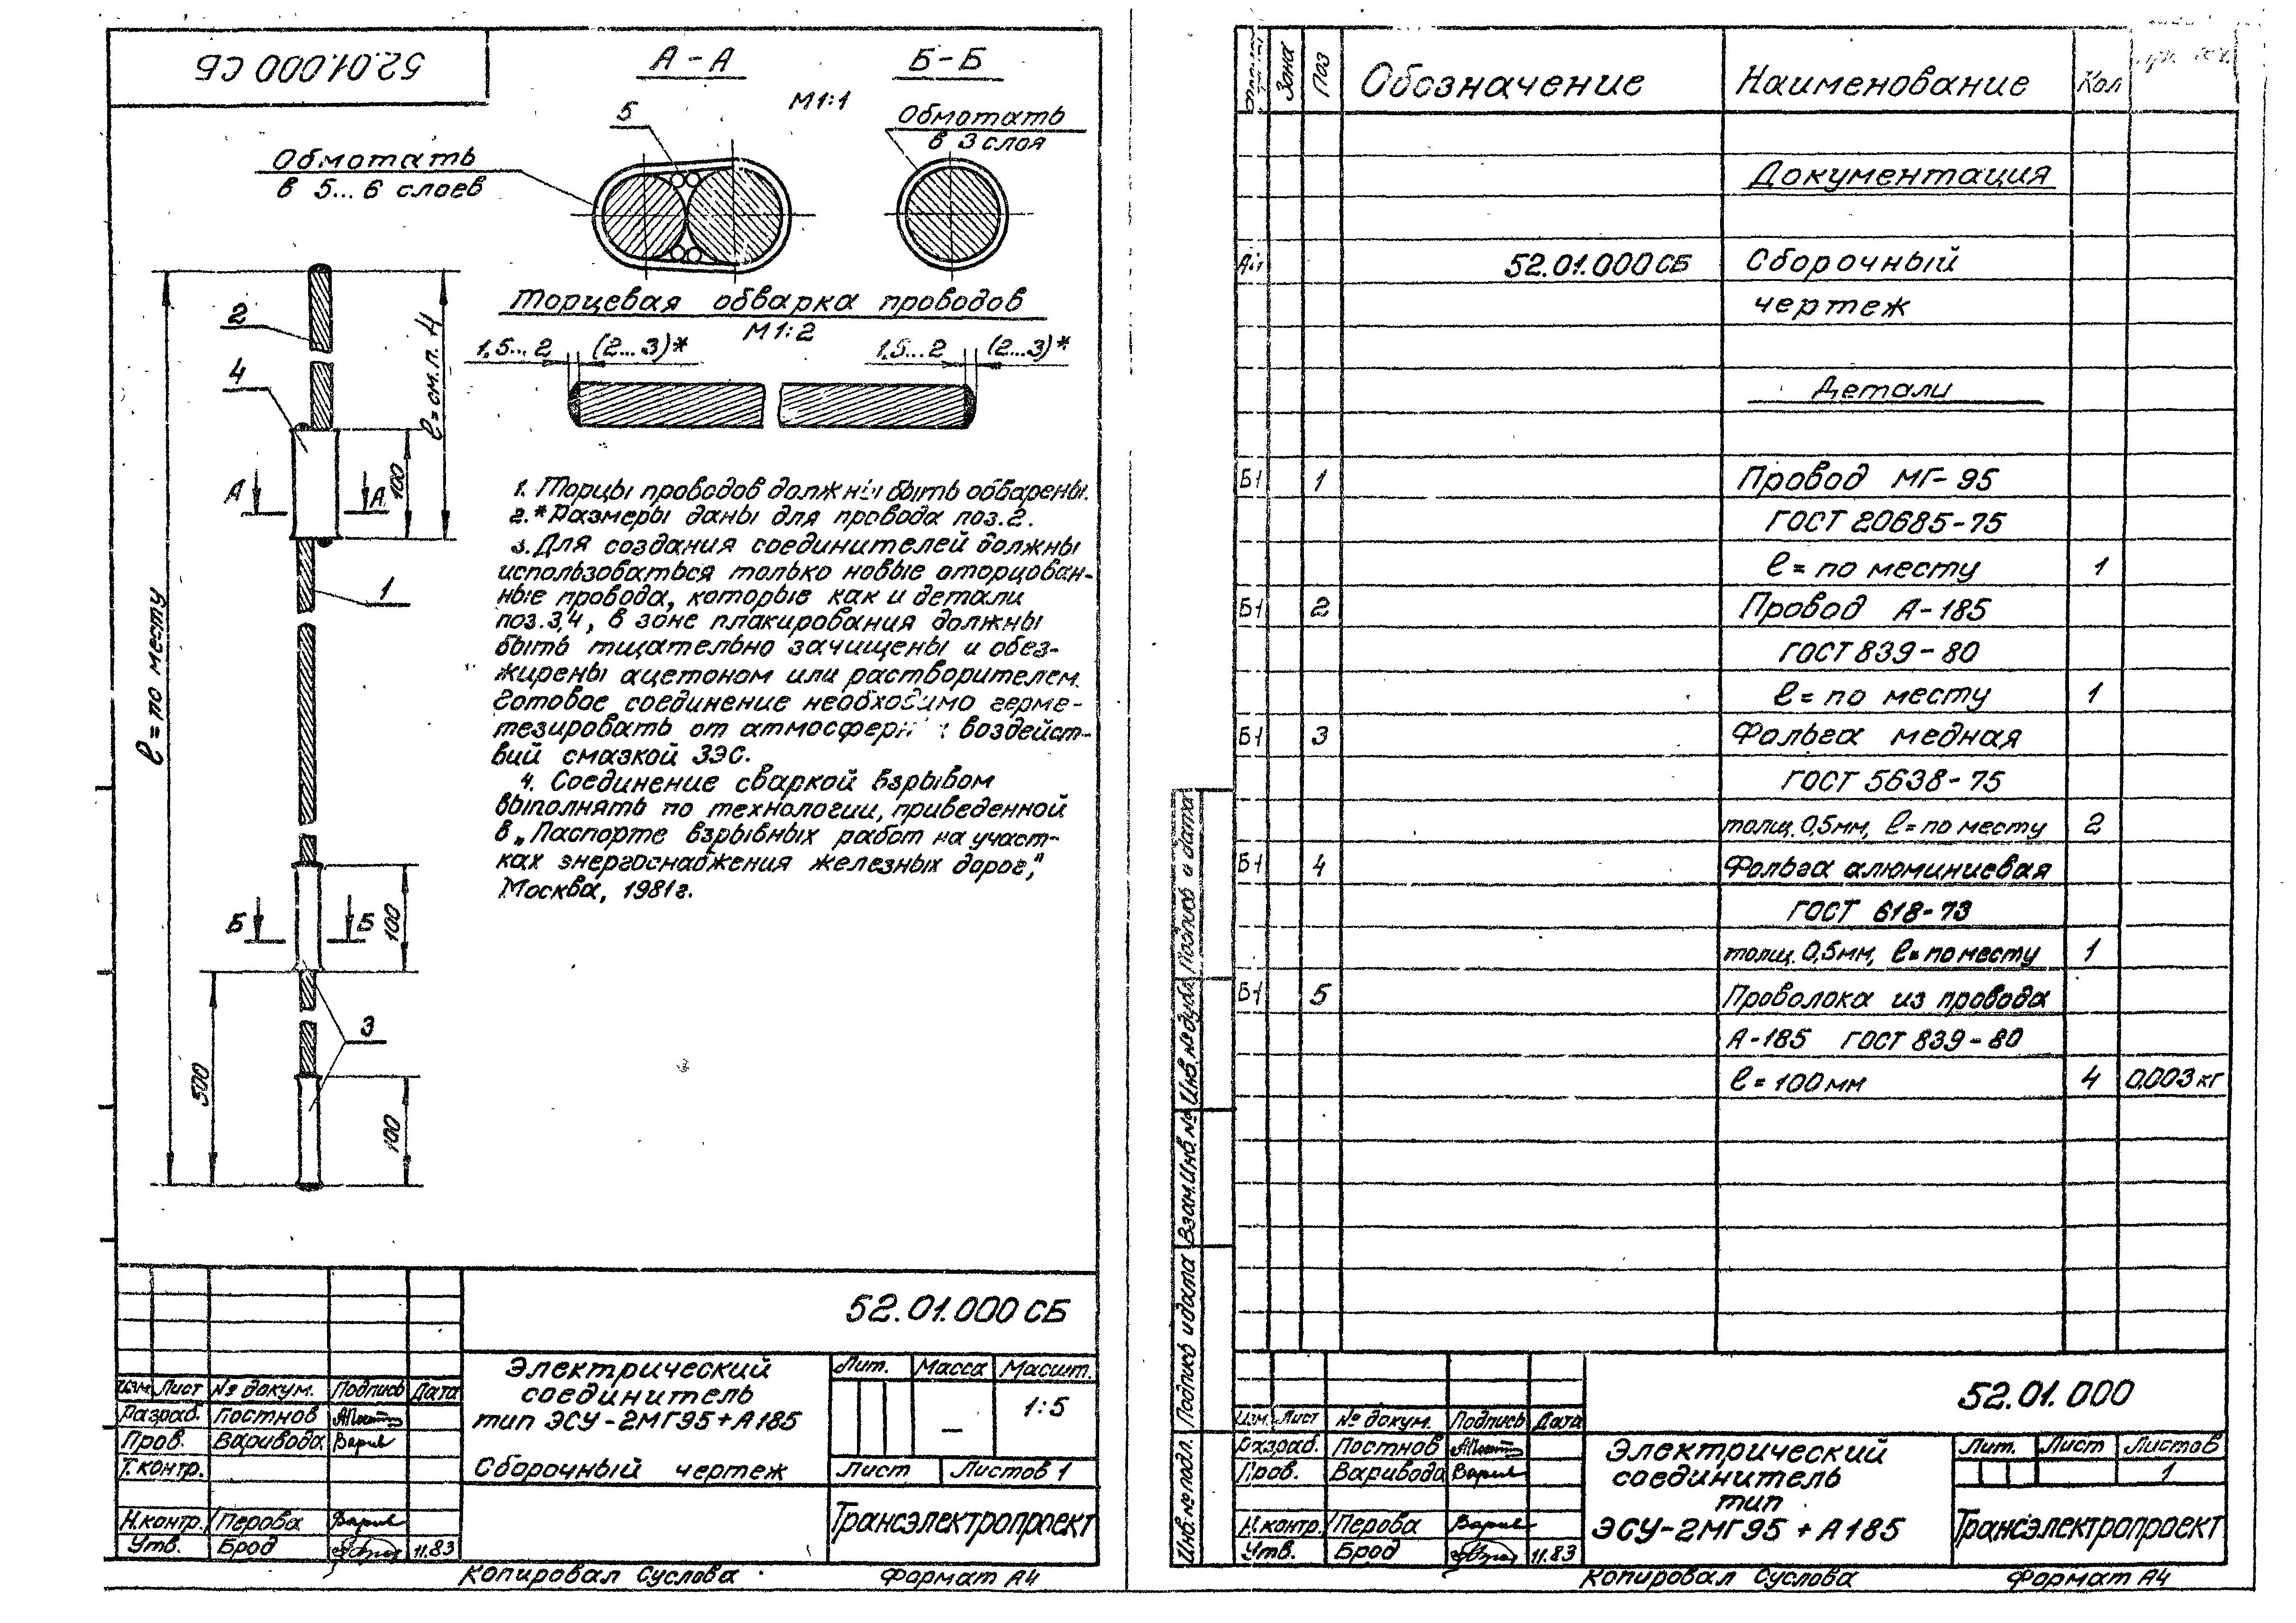 52.01.000 СБ
А-А
Б-Б
М1:1
5
Обмотать
в 5...6 слоев
Обмотать
в 3 слоя
Торцевая обварка проводов
М1:2
1,5...2
(2...3)*
1,5...2
(2...3)*
2
4
ℓ=см.п. 4
А
А
100
1
ℓ= по месту
Б
Б
100
3
500
100
1. Торцы проводов должны быть обварены.
2.* Размеры даны для провода поз.2.
3. Для создания соединителей должны
использоваться только новые оторцован-
ные провода, которые как и детали
поз.3,4, в зоне плакирования должны
быть тщательно зачищены и обез-
жирены ацетоном или растворителем.
Готовое соединение необходимо герме-
тезировать от атмосферн воздейст-
вий смазкой ЗЭС.
4. Соединение сваркой взрывом
выполнять по технологии, приведенной
в „Паспорте взрывных работ на участ-
ках энергоснабжения железных дорог,"
Москва, 1981г.
52.01.000 СБ
Электрический
соединитель
тип ЭСУ-2МГ95+А185
Сборочный чертеж
Лит. Масса Масшт.
– 1:5
Лист Листов 1
Трансэлектропроект
Изм Лист № докум. Подпись Дата
Разраб. Постнов
Пров. Варивода
Т.контр.
Н.контр. Перова
Утв. Брод 11.83
Копировал Суслова
Формат А4
Зона Поз Обозначение Наименование Кол
Документация
52.01.000 СБ Сборочный
чертеж
Детали
1 Провод МГ-95
ГОСТ 20685-75
ℓ= по месту 1
2 Провод А-185
ГОСТ 839-80
ℓ= по месту 1
3 Фольга медная
ГОСТ 5638-75
толщ. 0,5мм, ℓ= по месту 2
4 Фольга алюминиевая
ГОСТ 618-73
толщ. 0,5мм, ℓ= по месту 1
5 Проволока из провода
А-185 ГОСТ 839-80
ℓ= 100мм 4 0.003 кг
Подпись и дата
Инв. № дубл.
Взам. Инв. №
Подпись и дата
Инв. № подл.
52.01.000
Изм. Лист № докум. Подпись Дата
Разраб. Постнов
Пров. Варивода
Н.контр. Перова
Утв. Брод 11.83
Электрический
соединитель
тип
ЭСУ-2МГ95 + А185
Лит. Лист Листов
1
Трансэлектропроект
Копировал Суслова
Формат А4